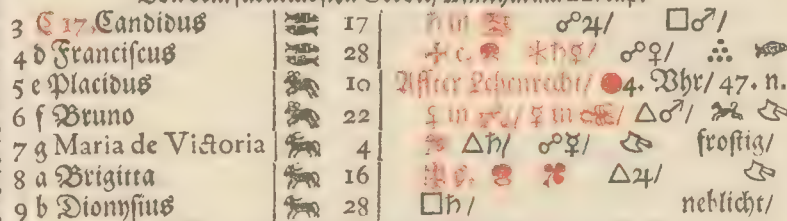 3 C 17. Candidus 17 ♄ in ☍♃/ □♂/
4 d Franciscus 28 c. ⚹♄☿/ ☍♀/
5 e Placidus 10 Affter Lehenrecht/ 4. Vhr/ 47. n.
6 f Bruno 22 ♀ in / ☿ in / △♂/
7 g Maria de Victoria 4 △♄/ ☍☿/ frostig/
8 a Brigitta 16 c. △♃/
9 b Dionysius 28 □♄/ neblicht/